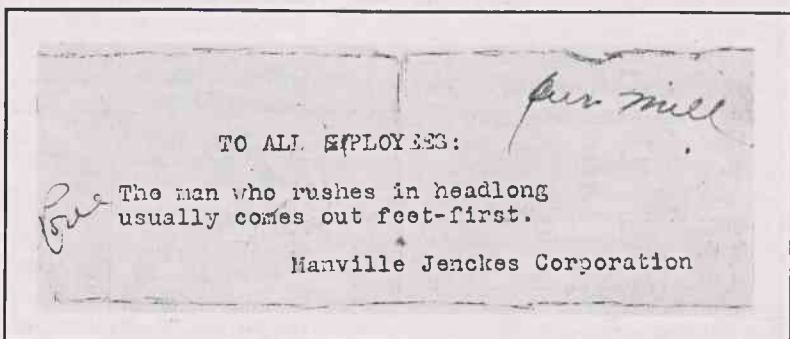 our mill
TO ALL EMPLOYEES:
The man who rushes in headlong
usually comes out feet-first.
Manville Jenckes Corporation